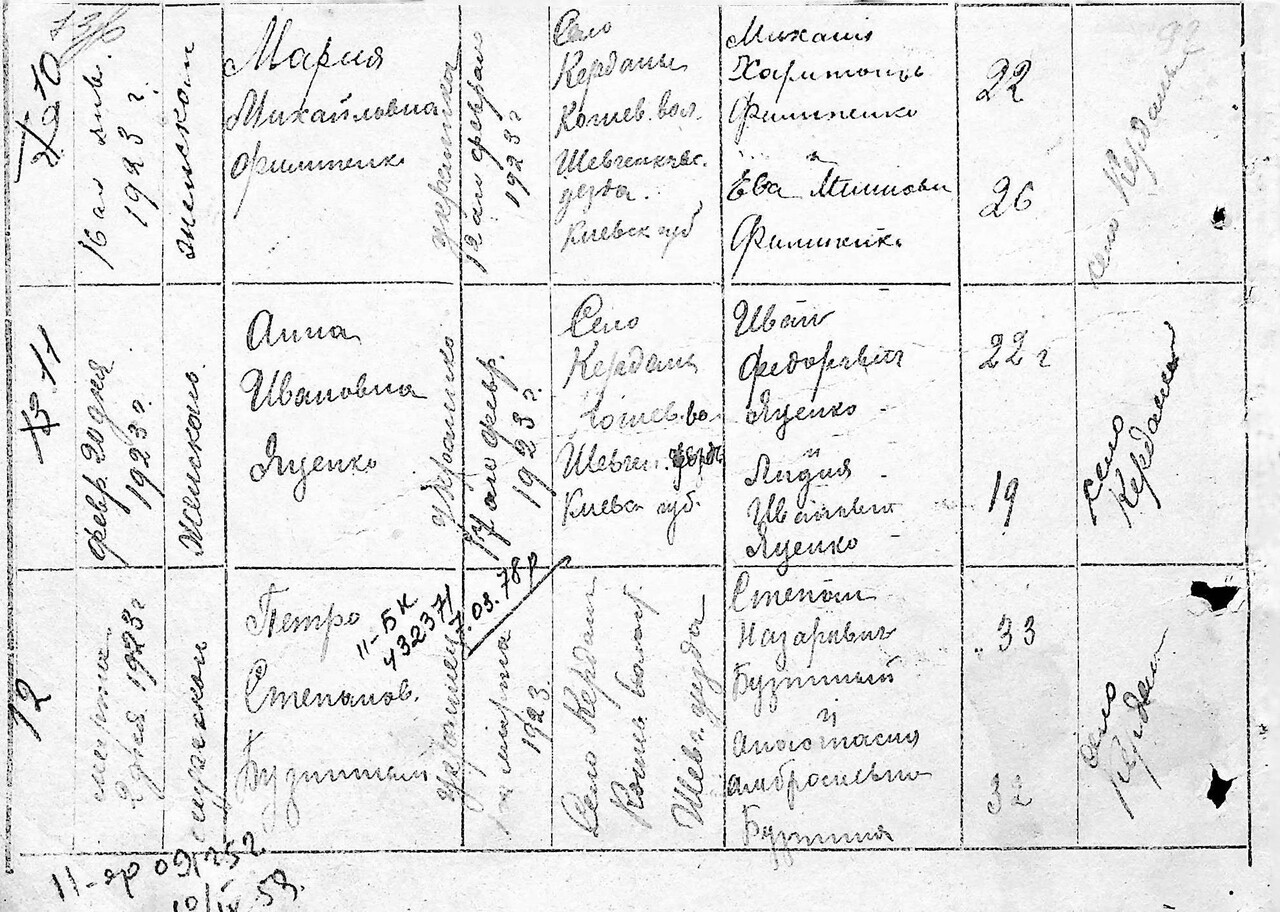 10
16 ал янв.
1923 г.
женской
Мария
Михайловна
Филипенко
украинка
12 ал февраля
1923 г
Село
Керданы
Кошев. вол.
Шевченковс.
уезда.
Киевск губ
Михаил
Харитонов
Филипенко
и
Ева
Филипенко
22
26
село Керданы
11
февр. 20 дня
1923 г.
Женской.
Анна
Ивановна
Яценко
украинка
17 аго февр.
1923 г.
Село
Кердан
Кошев. во
Шевчен. уезд.
Киевск губ.
Иван
Федорович
Яценко
и
Лидия
Ивановна
Яценко
22 г
19
село
Кердан
12
марта
2 дня 1923 г
мужской
Петро
Степанов.
11-БК
432371
7.03.78 р
украинец
марта
1923.
Село Кердан
Кошев. волост
Шевч. уезда
Степан
Назарович
и
Анастасия
Амбросиевна
33
32
село
Кердан
11-яр 091252
10/IX 53.